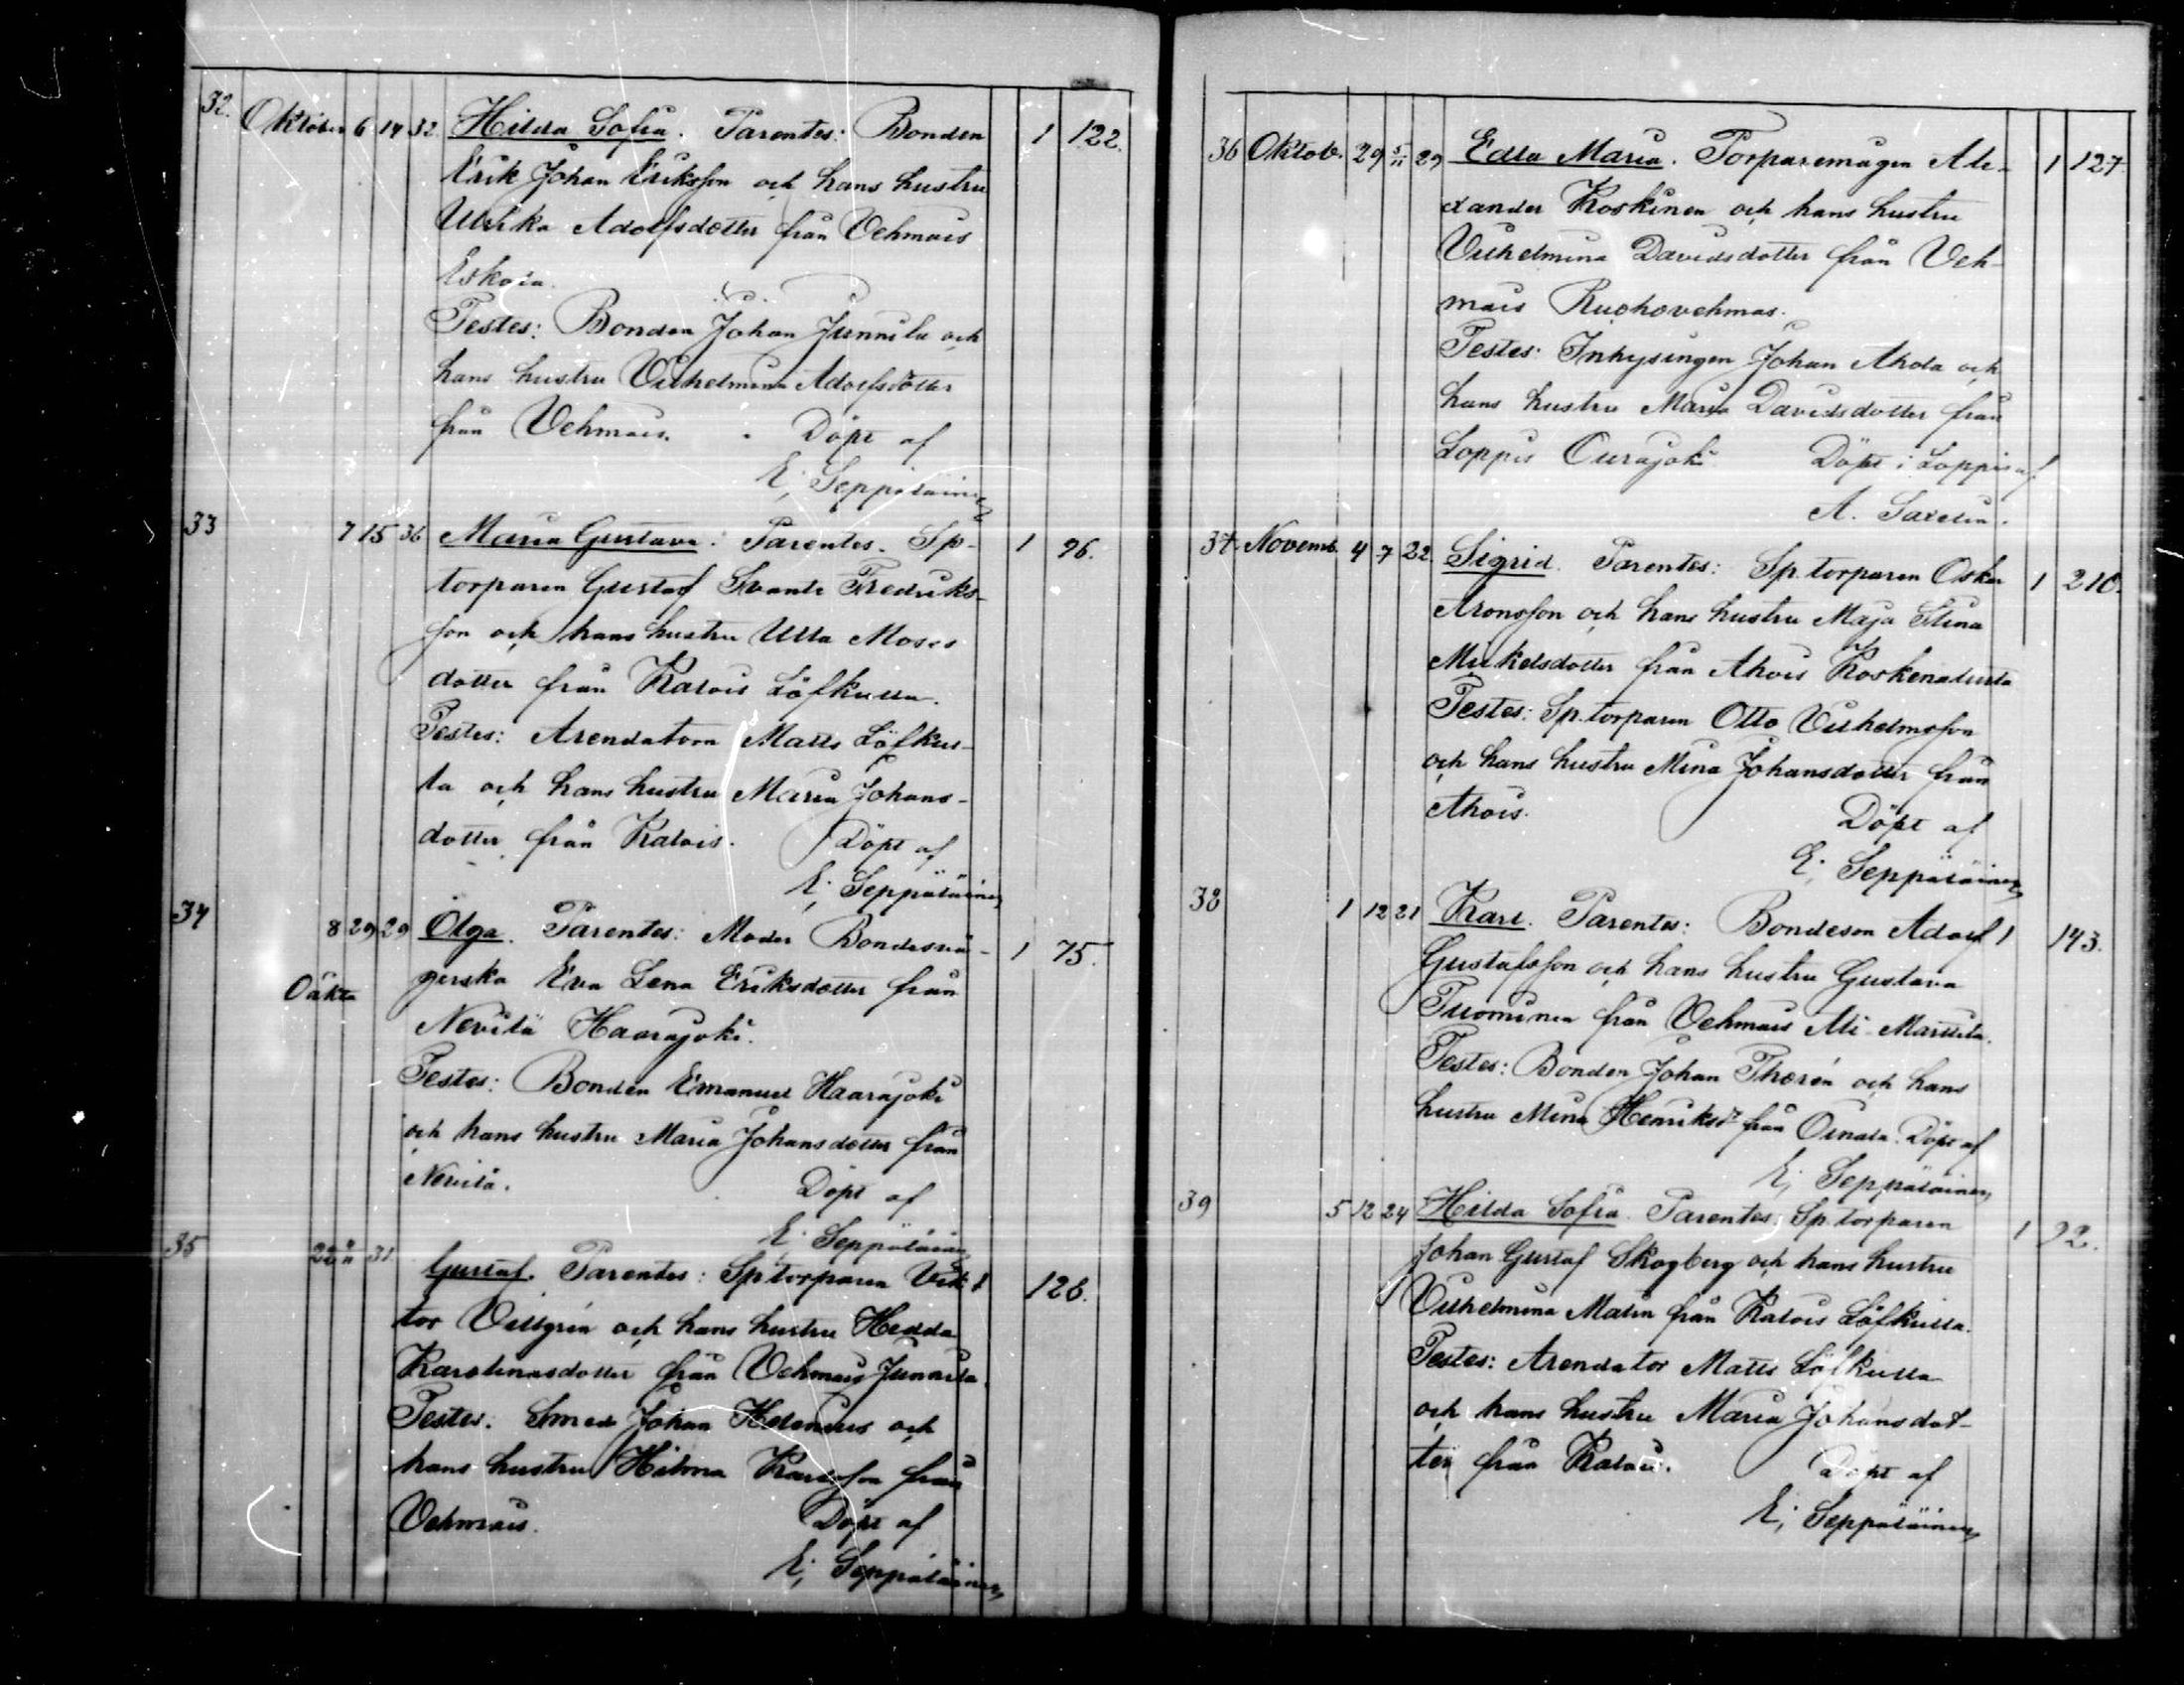 32. Oktober 6 14 32. Hilda Sofia. Parentes: Bonden 1 122.
Erik Johan Eriksson och hans hustru
Ulrika Adolfsdotter från Vehmais
Eskola.
Testes: Bonden Johan Junnila och
hans hustru Vilhelmina Adolfsdotter
från Vehmais. Döpt af
E; Seppäläinen
33 7 15 36 Maria Gustava. Parentes. Sp-
1 96.
torparen Gustaf Svante Fredriks-
son och hans hustru Ulla Moses
dotter från Kalois Löfkulla.
Testes: Arendatorn Matts Löfkul-
la och hans hustru Maria Johans-
dotter från Kalois. Döpt af
E; Seppäläinen
34 8 29 29 Olga. Parentes: Moder Bondesvä- 1 75.
Oäkta gerska Eva Lena Eriksdotter från
Nevilä Haarajoki.
Testes: Bonden Emanuel Haarajoki
och hans hustru Maria Johansdotter från
Nevilä. Döpt af
E; Seppäläinen
35 31 Gustaf. Parentes: Sp torparen Vik 1 126.
tor Vellgrén och hans hustru Hedda
Karolinasdotter från Vehmais Junnila.
Testes: Smed Johan Helenius och
hans hustru Hilma Karlsson från
Vehmais. Döpt af
E; Seppäläinen
36 Oktob. 29 5/11 29 Edla Maria. Torparemågen Ale- 1 127
xander Koskinen och hans hustru
Vilhelmina Davidsdotter från Veh-
mais Ruohovehmas.
Testes: Inhysingen Johan Ahola och
hans hustru Maria Davidsdotter från
Loppis Ourajoki Döpt i Loppis af
A. Saxelin.
37. Novemb. 4 7 22. Sigrid. Parentes: Sp. torparen Oskar 1 210.
Aronsson och hans hustru Maja Stina
Mikelsdotter från Ahois Koskenalusta
Testes: Sp. torparen Otto Vilhelmsson
och hans hustru Mina Johansdotter från
Ahois. Döpt af
E; Seppäläinen
38 1 12 21 Karl. Parentes: Bondeson Adolf 1 143.
Gustafsson och hans hustru Gustava
Tuominen från Vehmais Ali-Marttila.
Testes: Bonden Johan Thorén och hans
hustru Mina Henriksdr från Oinala. Döpt af
E; Seppäläinen
39 5 12 24 Hilda Sofia. Parentes: Sp. torparen 1 92.
Johan Gustaf Skogberg och hans hustru
Vilhelmina Malin från Kalois Löfkulla.
Testes: Arendator Matts Löfkulla
och hans hustru Maria Johansdot-
ter från Kalois. Döpt af
E; Seppäläinen